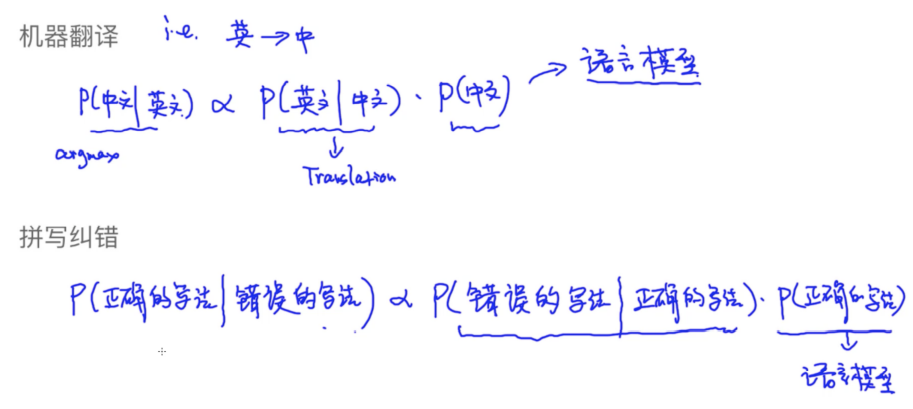 机器翻译 i.e. 英→中
P(中文|英文) ∝ P(英文|中文)·P(中文) → 语言模型
argmax
Translation
拼写纠错
P(正确的写法|错误的写法) ∝ P(错误的写法|正确的写法)·P(正确的写法)
语言模型